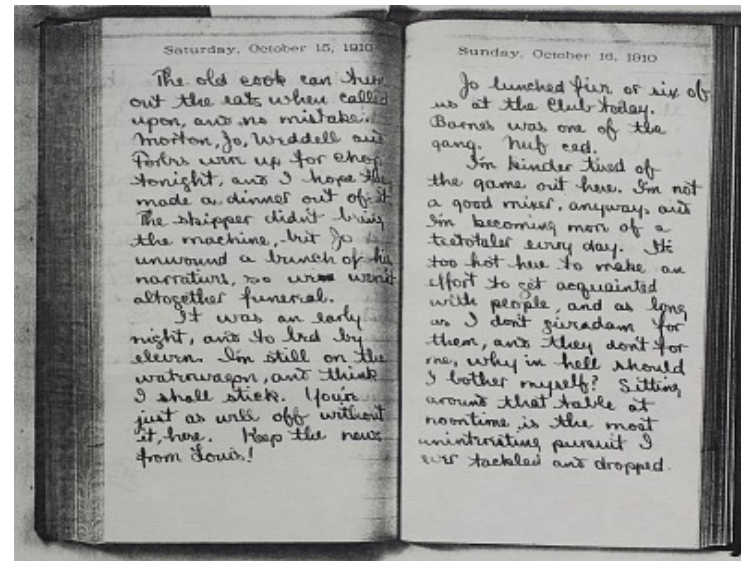 Saturday, October 15, 1910
The old cook can turn
out the eats when called
upon, and no mistake.
Morton, Jo, Weddell and
Forbes were up for chop
tonight, and I hope they
made a dinner out of it.
The skipper didn't bring
the machine, but Jo
unwound a bunch of his
narratives, so we weren't
altogether funereal.
It was an early
night, and to bed by
eleven. I'm still on the
waterwagon, and think
I shall stick. You're
just as well off without
it, here. Keep the news
from Louis!
Sunday, October 16, 1910
Jo lunched five or six of
us at the Club today.
Barnes was one of the
gang. Nuf ced.
I'm kinder tired of
the game out here. I'm not
a good mixer, anyway, and
I'm becoming more of a
teetotaler every day. It's
too hot here to make an
effort to get acquainted
with people, and as long
as I don't giveadam for
them, and they don't for
me, why in hell should
I bother myself? Sitting
around that table at
noontime is the most
uninteresting pursuit I
ever tackled and dropped.